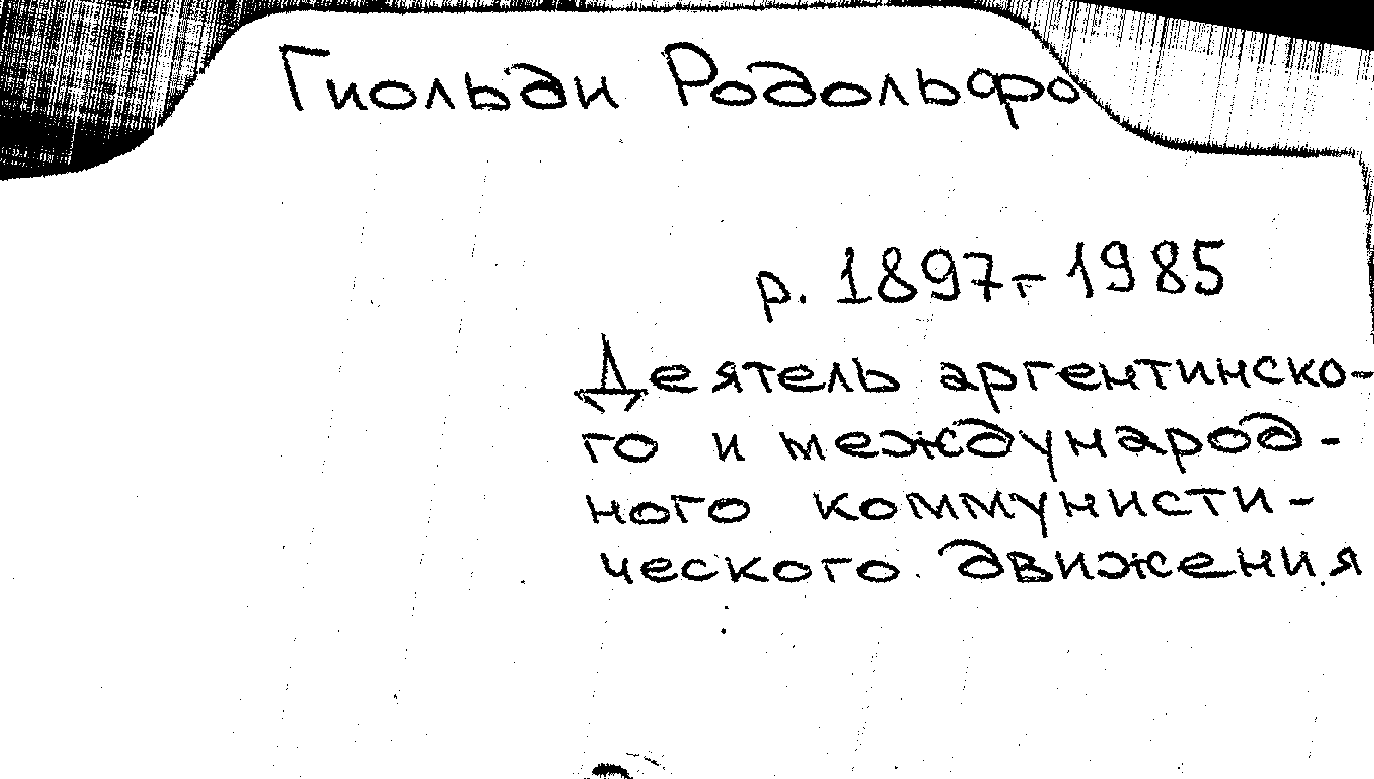 Гиольди Родольфо
р. 1897г-1985
Деятель аргентинско-
го и международ-
ного коммунисти-
ческого движения